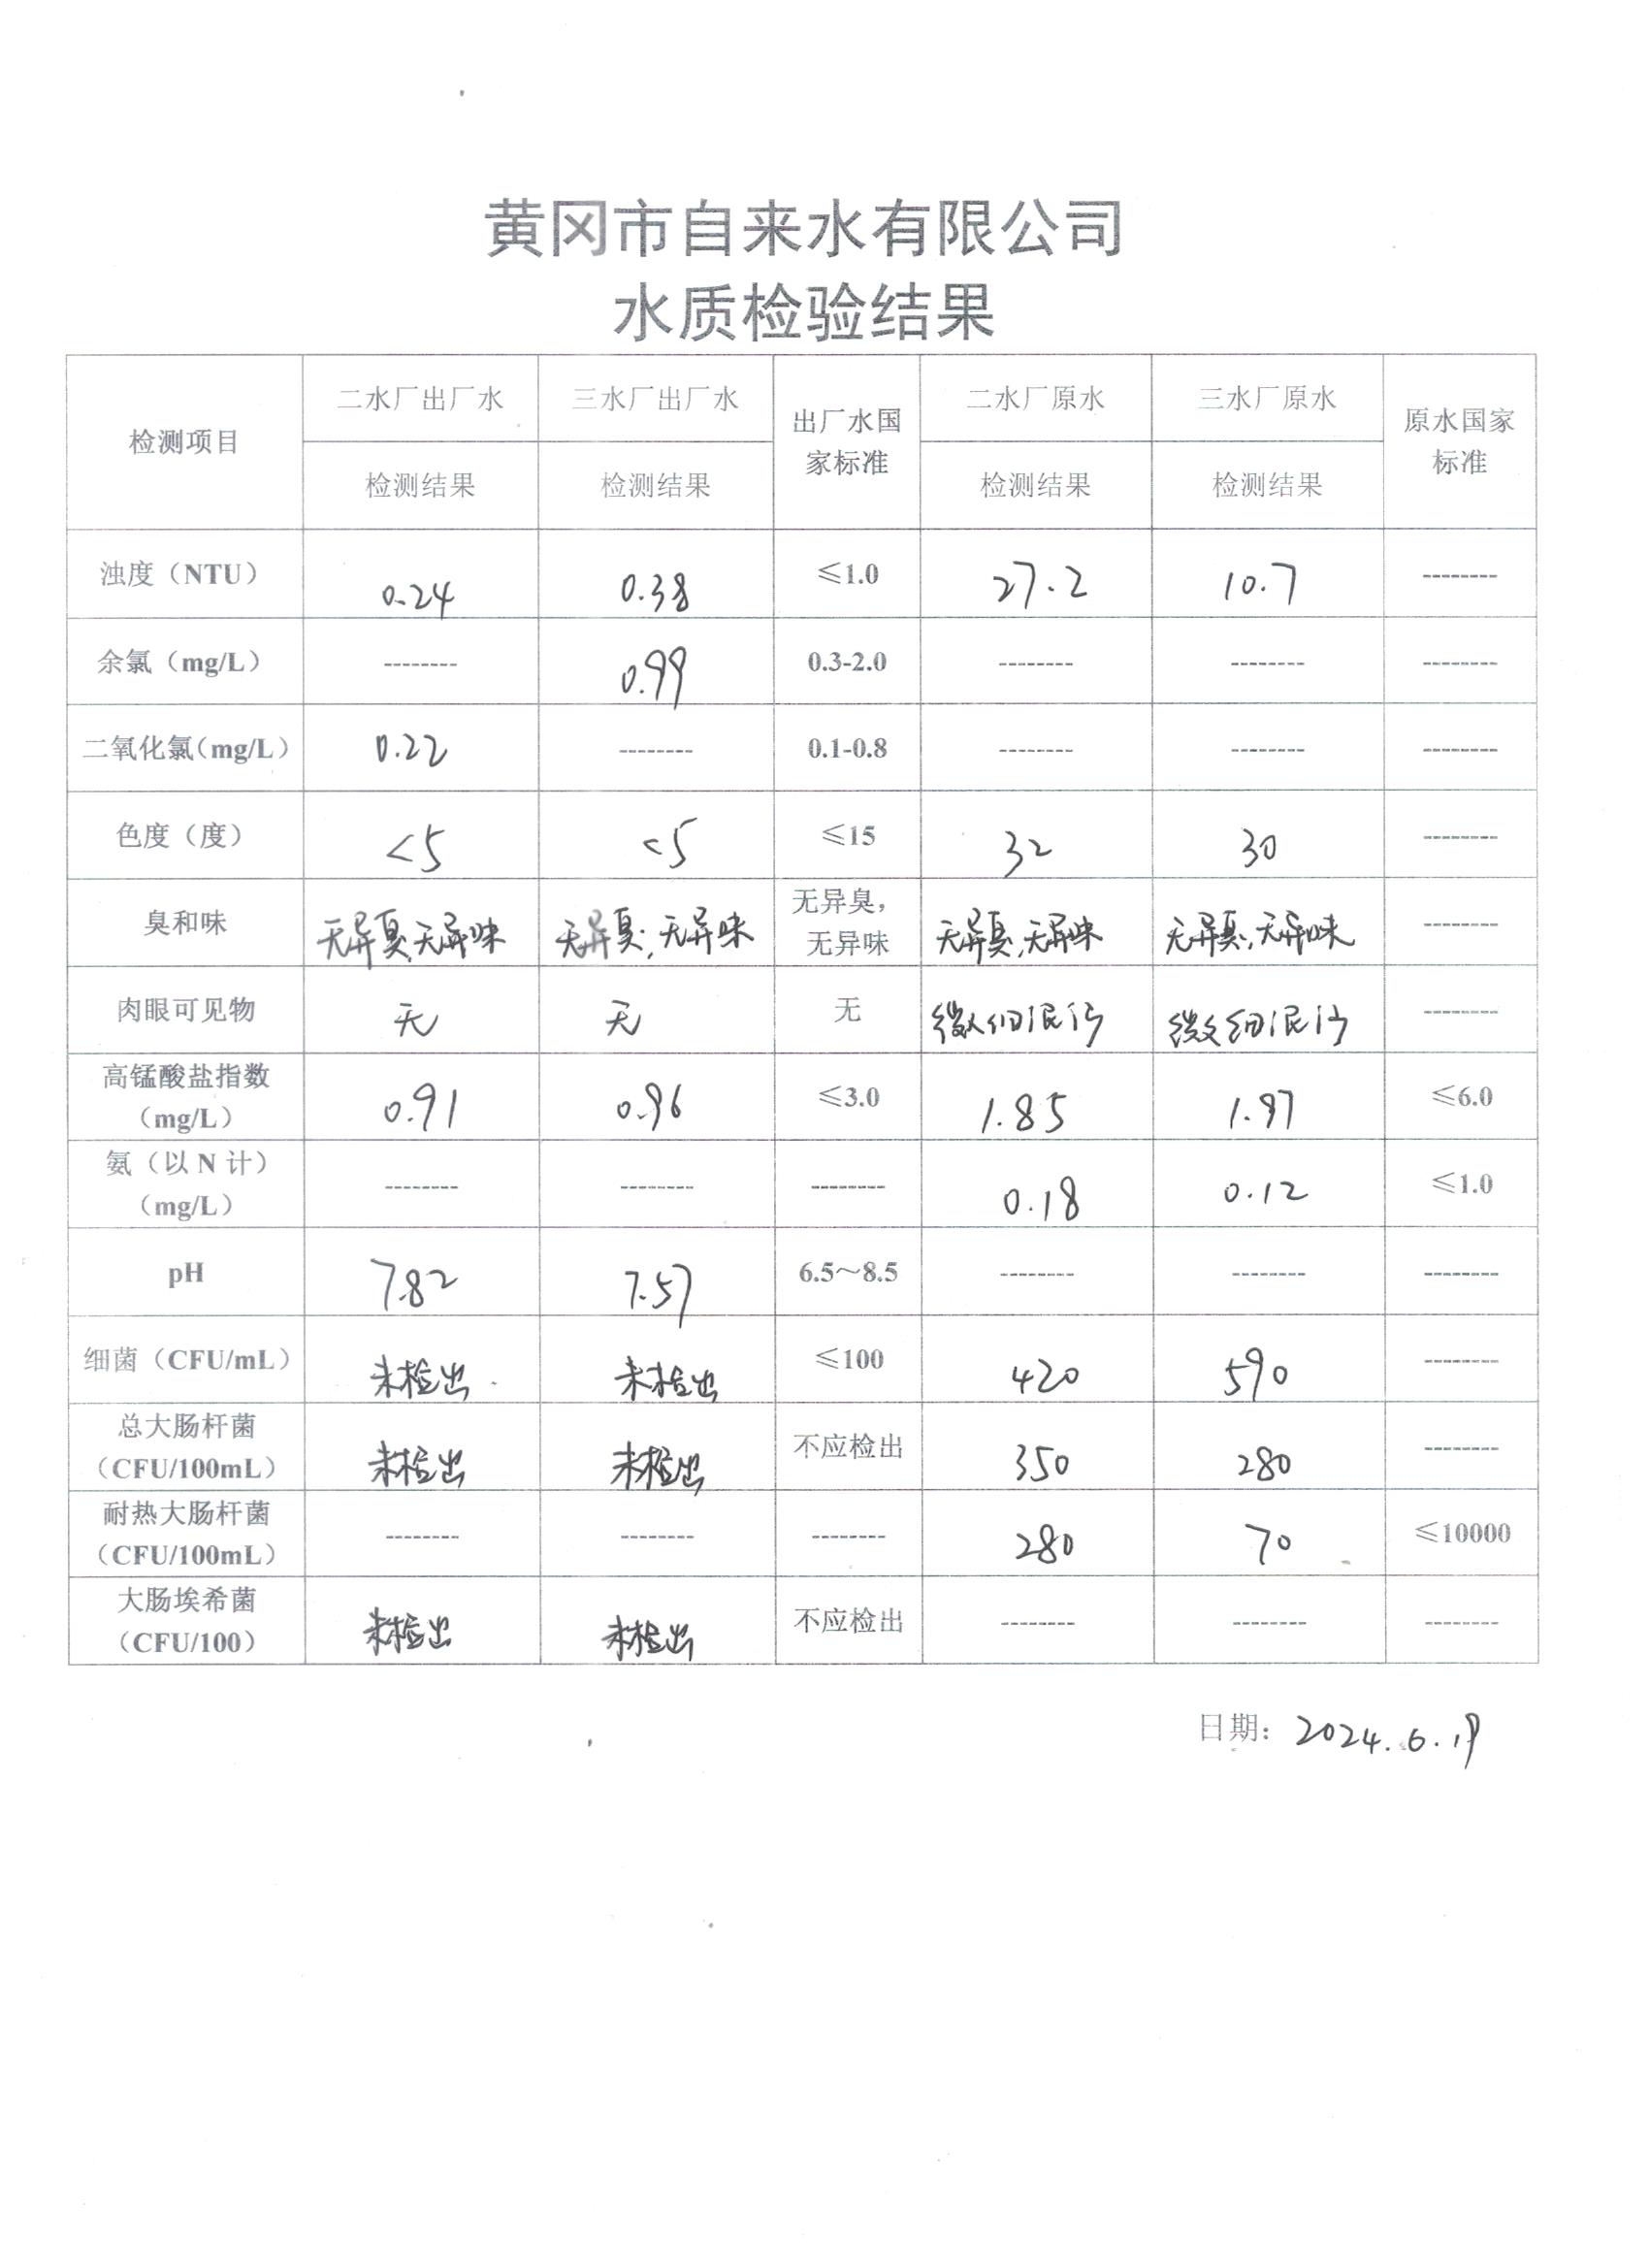 黄冈市自来水有限公司
水质检验结果
检测项目 二水厂出厂水 三水厂出厂水 出厂水国家标准 二水厂原水 三水厂原水 原水国家标准
检测结果 检测结果 检测结果 检测结果
浊度（NTU） 0.24 0.38 ≤1.0 27.2 10.7 --------
余氯（mg/L） -------- 0.99 0.3-2.0 -------- -------- --------
二氧化氯（mg/L） 0.22 -------- 0.1-0.8 -------- -------- --------
色度（度） <5 <5 ≤15 32 30 --------
臭和味 无异臭,无异味 无异臭,无异味 无异臭，无异味 无异臭,无异味 无异臭,无异味 --------
肉眼可见物 无 无 无 微细泥沙 微细泥沙 --------
高锰酸盐指数（mg/L） 0.91 0.96 ≤3.0 1.85 1.97 ≤6.0
氨（以 N 计）（mg/L） -------- -------- -------- 0.18 0.12 ≤1.0
pH 7.82 7.57 6.5～8.5 -------- -------- --------
细菌（CFU/mL） 未检出 未检出 ≤100 420 590 --------
总大肠杆菌（CFU/100mL） 未检出 未检出 不应检出 350 280 --------
耐热大肠杆菌（CFU/100mL） -------- -------- -------- 280 70 ≤10000
大肠埃希菌（CFU/100） 未检出 未检出 不应检出 -------- -------- --------
日期：2024.6.19